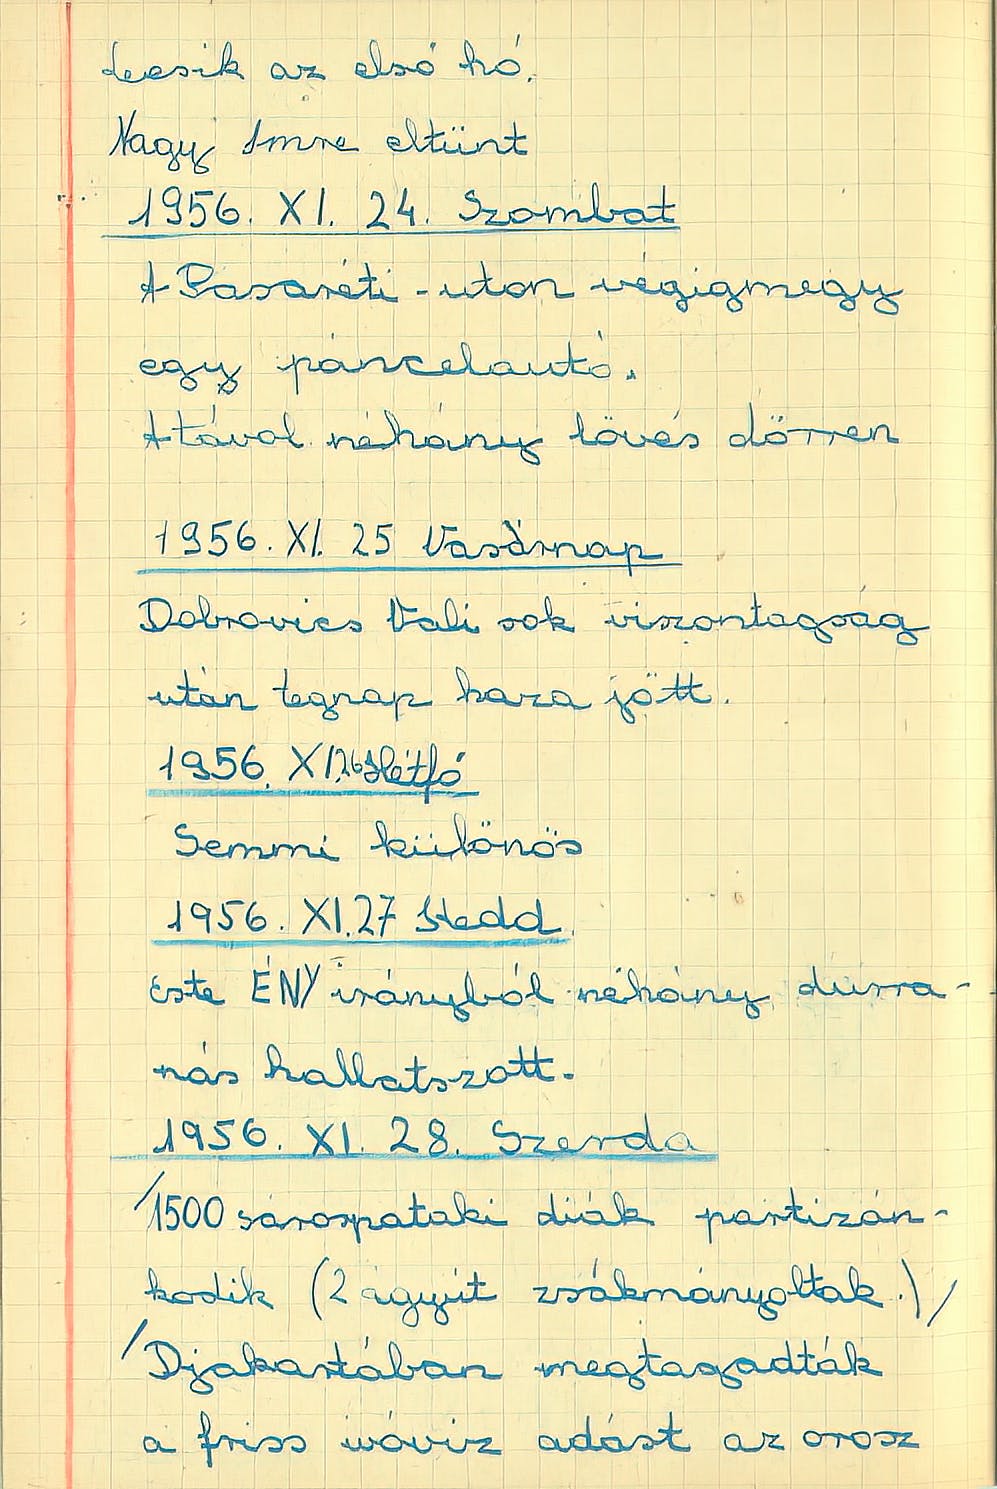 Leesik az első hó.
Nagy Imre eltünt
1956. XI. 24. Szombat
A Pasaréti-uton végigmegy
egy páncelautó.
A távol néhány lövés dörren
1956. XI. 25 Vasárnap
Dobrovics Vali sok viszontagság
után tegnap haza jött.
1956. XI.26 Hétfő
Semmi különös
1956. XI.27 Kedd
Este ÉNY irányból néhány durra-
nás hallatszott.
1956. XI. 28. Szerda
/1500 sárospataki diák partizán-
kodik (2 ágyút zsákmányoltak.)/
/Djakartában megtagadták
a friss ivóviz adást az orosz